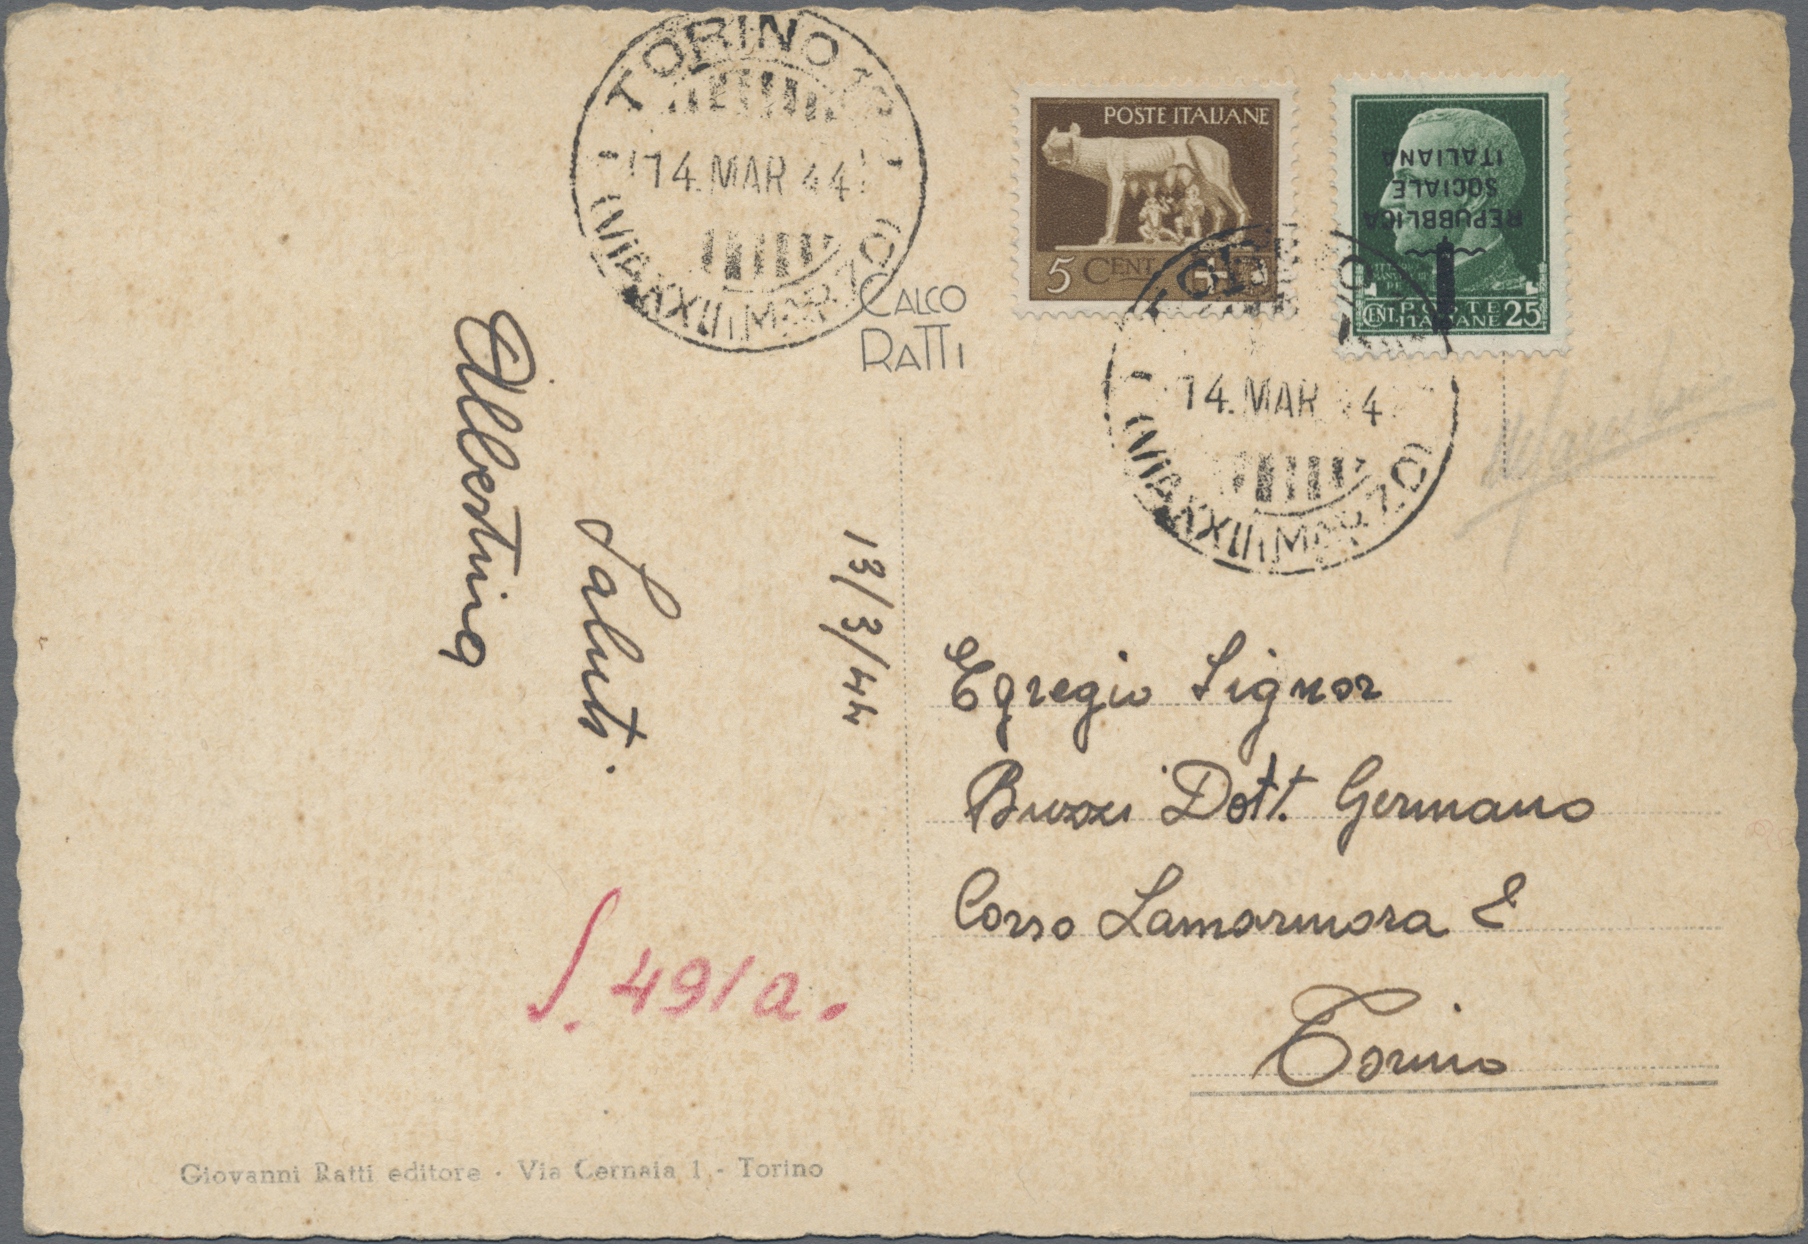 TORINO
14.MAR 44
(Via XXIII MARZO)
CALCO
RATTI
POSTE ITALIANE
5 CENT.
REPUBBLICA
SOCIALE
ITALIANA
CENT. POSTE
ITALIANE 25
TORINO
14.MAR 44
(Via XXIII MARZO)
13/3/44
Saluti.
Albertina
Egregio Signor
Buzzi Dott. Germano
Corso Lamarmora 2
Torino
S. 491a.
Giovanni Ratti editore - Via Cernaia 1 - Torino